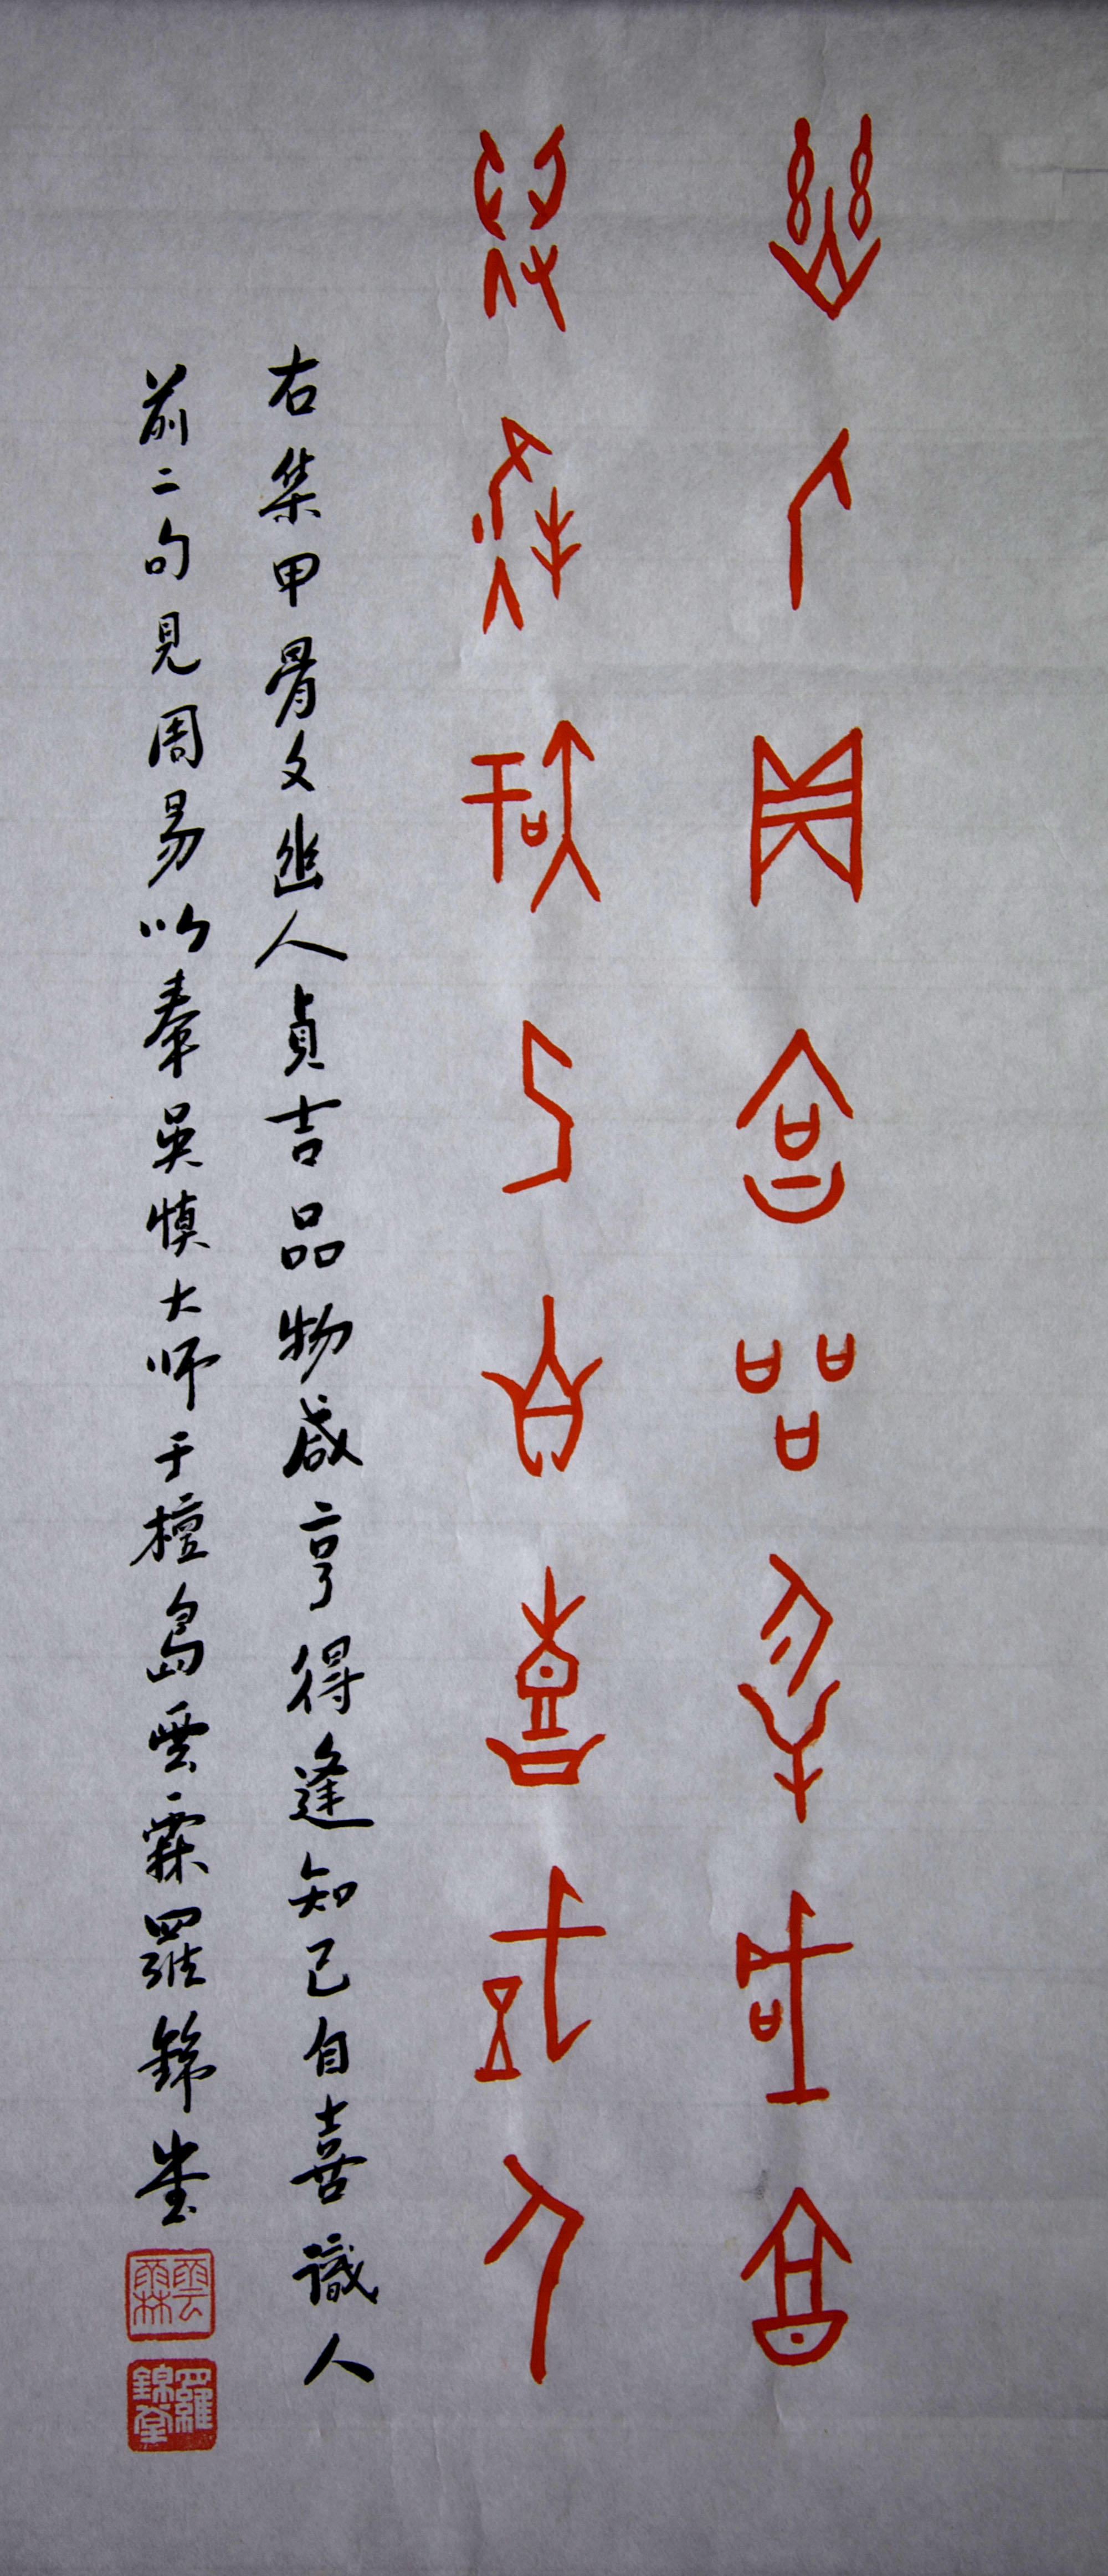 幽人貞吉品物咸亨
得逢知己自喜識人
右集甲骨文幽人貞吉品物咸亨得逢知己自喜識人
前二句見周易以奉吳慎大师于檀島雲霖羅錦堂
雲霖
羅錦堂